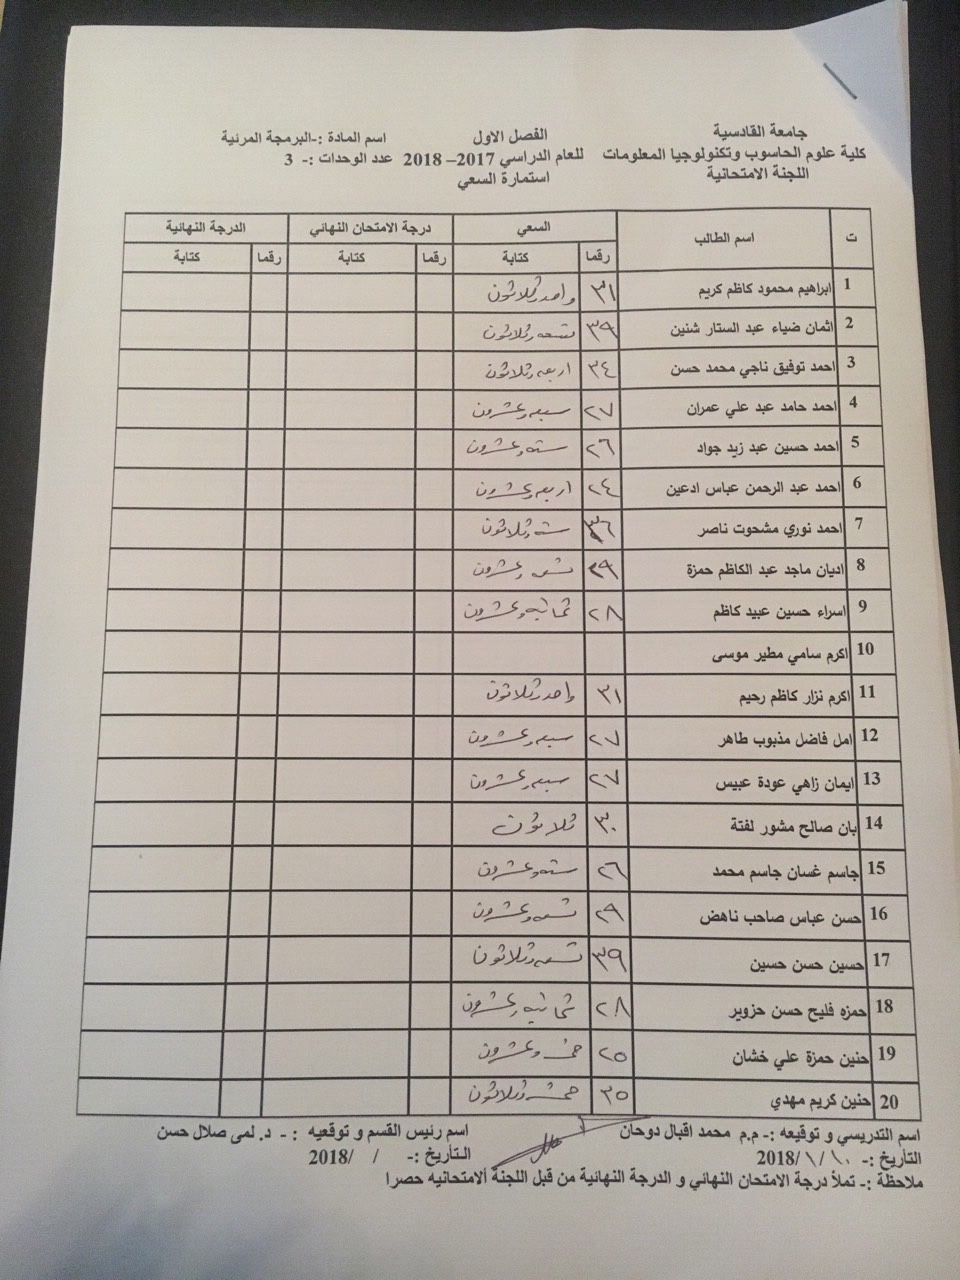 جامعة القادسية
كلية علوم الحاسوب وتكنولوجيا المعلومات
اللجنة الامتحانية
الفصل الاول
للعام الدراسي 2017– 2018
استمارة السعي
اسم المادة :-البرمجة المرئية
عدد الوحدات :- 3
ت اسم الطالب السعي درجة الامتحان النهائي الدرجة النهائية
رقما كتابة رقما كتابة رقما كتابة
1 ابراهيم محمود كاظم كريم ٣١ واحد وثلاثون
2 اثمان ضياء عبد الستار شنين ٣٩ تسعه وثلاثون
3 احمد توفيق ناجي محمد حسن ٣٤ اربعه وثلاثون
4 احمد حامد عبد علي عمران ٢٧ سبعه وعشرون
5 احمد حسين عبد زيد جواد ٢٦ سته وعشرون
6 احمد عبد الرحمن عباس ادعين ٢٤ اربعه وعشرون
7 احمد نوري مشحوت ناصر ٣٦ سته وثلاثون
8 اديان ماجد عبد الكاظم حمزة ٢٩ تسعه وعشرون
9 اسراء حسين عبيد كاظم ٢٨ ثمانيه وعشرون
10 اكرم سامي مطير موسى
11 اكرم نزار كاظم رحيم ٣١ واحد وثلاثون
12 امل فاضل مذبوب طاهر ٢٧ سبعه وعشرون
13 ايمان زاهي عودة عبيس ٢٧ سبعه وعشرون
14 بان صالح مشور لفتة ٣٠ ثلاثون
15 جاسم غسان جاسم محمد ٢٦ سته وعشرون
16 حسن عباس صاحب ناهض ٢٩ تسعه وعشرون
17 حسين حسن حسين ٣٩ تسعه وثلاثون
18 حمزه فليح حسن حزوير ٢٨ ثمانيه وعشرون
19 حنين حمزة علي خشان ٢٥ خمسه وعشرون
20 حنين كريم مهدي ٣٥ خمسه وثلاثون
اسم التدريسي و توقيعه :- م.م محمد اقبال دوحان
اسم رئيس القسم و توقعيه : - د. لمى صلال حسن
التأريخ :- ١٠/ ١/ 2018
التأريخ :- / /2018
ملاحظة :- تملأ درجة الامتحان النهائي و الدرجة النهائية من قبل اللجنة الامتحانيه حصرا